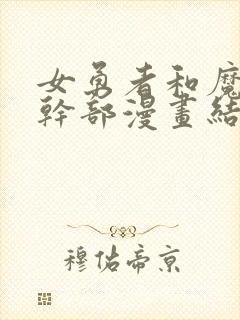 女勇者和魔
幹部漫畫結
穆佑帝京